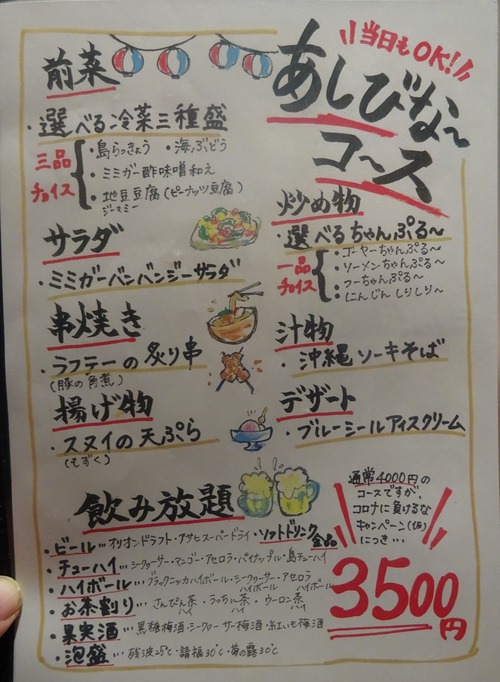 当日もOK!
あしびな〜
コース
前菜
・選べる冷菜三種盛
三品
チョイス
・島らっきょう ・海ぶどう
・ミミガー酢味噌和え
・地豆豆腐(ピーナッツ豆腐)
ジーマミー
サラダ
・ミミガーバンバンジーサラダ
串焼き
・ラフテーの炙り串
(豚の角煮)
揚げ物
・スヌイの天ぷら
(もずく)
炒め物
・選べるちゃんぷる〜
一品
チョイス
・ゴーヤーちゃんぷる〜
・ソーメンちゃんぷる〜
・フーちゃんぷる〜
・にんじんしりしり〜
汁物
・沖縄ソーキそば
デザート
・ブルーシールアイスクリーム
飲み放題
・ビール…オリオンドラフト・アサヒスーパードライ・ソフトドリンク全品
・チューハイ…シークヮーサー・マンゴー・アセロラ・パイナップル・島チューハイ
・ハイボール…ブラックニッカハイボール・シークヮーサーハイボール・アセロラハイボール
・お茶割り…さんぴん茶ハイ・うっちん茶ハイ・ウーロン茶ハイ
・果実酒…黒糖梅酒・シークヮーサー梅酒・紅いも梅酒
・泡盛…残波25℃・請福30℃・菊の露30℃
通常4000円の
コースですが、
コロナに負けるな
キャンペーン(仮)
につき…
3500円